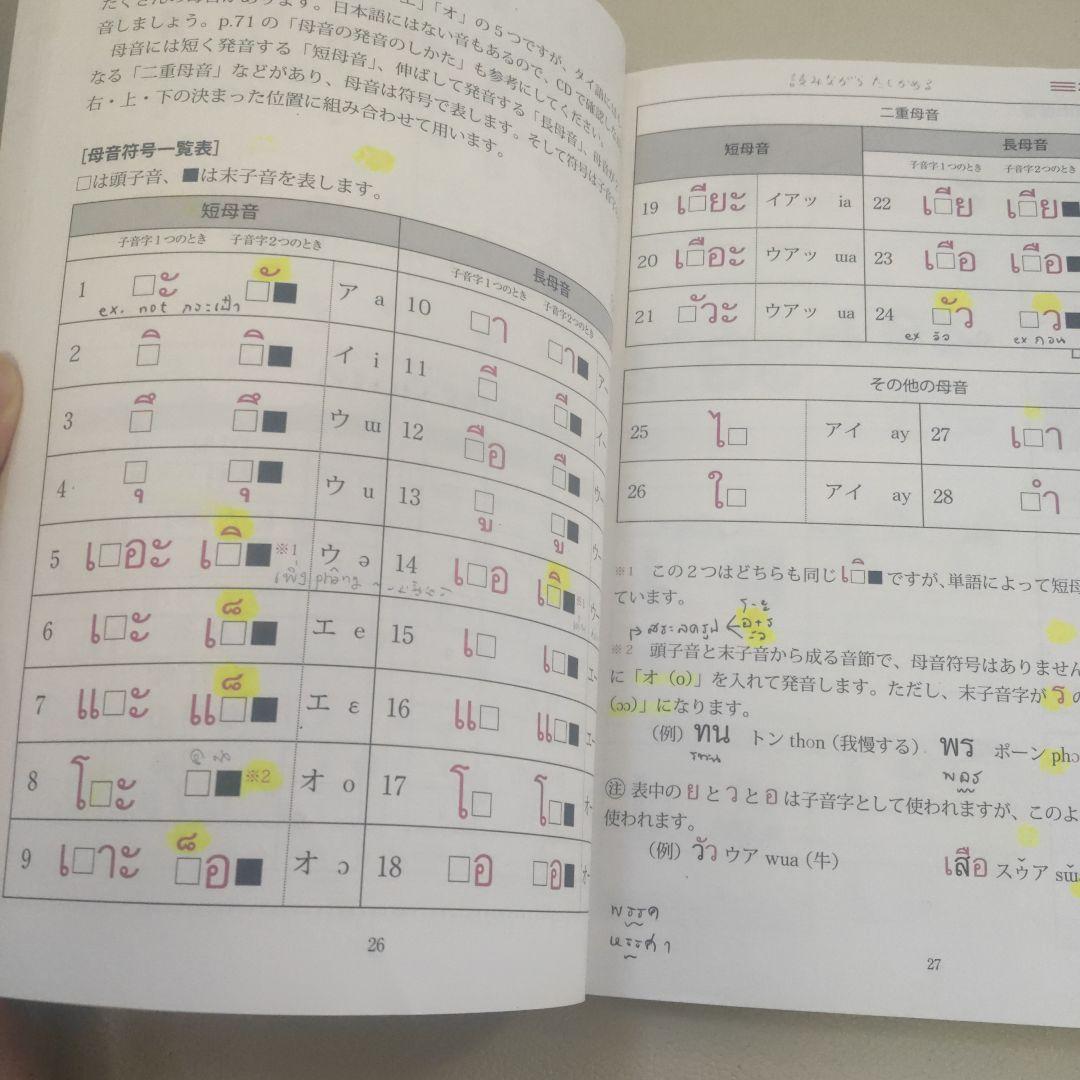 「オ」の5つですが、タイ語には
たくさんの母音があります。日本語にはない音もあるので、CDで確認し
音しましょう。p.71の「母音の発音のしかた」も参考にしてください。
母音には短く発音する「短母音」、伸ばして発音する「長母音」、母音が
なる「二重母音」などがあり、母音は符号で表します。そして符号は子音
右・上・下の決まった位置に組み合わせて用います。
[母音符号一覧表]
□は頭子音、■は末子音を表します。
短母音
子音字1つのとき 子音字2つのとき
長母音
子音字1つのとき 子音字2つのとき
1 □ะ □ั■ ア a
ex. not กระเป๋า
2 □ิ □ิ■ イ i
3 □ึ □ึ■ ウ ɯ
4 □ุ □ุ■ ウ u
5 เ□อะ เ□ิ■ ※1 ウ ə
เพิ่ง
6 เ□ะ เ□็■ エ e
7 แ□ะ แ□็■ エ ɛ
8 โ□ะ □■ ※2 オ o
9 เ□าะ □็อ■ オ ɔ
10 □า □า■ ア
11 □ี □ี■ イ
12 □ือ □ื■ ウ
13 □ู □ู■ ウ
14 เ□อ เ□ิ■ ※1 ウ
15 เ□ เ□■ エ
16 แ□ แ□■ エ
17 โ□ โ□■ オ
18 □อ □อ■ オ
26
読みながら たしかめる
二重母音
短母音
長母音
子音字1つのとき 子音字2つのとき
19 เ□ียะ イアッ ia 22 เ□ีย เ□ีย■
20 เ□ือะ ウアッ ɯa 23 เ□ือ เ□ือ■
21 □ัวะ ウアッ ua 24 □ัว □ว■
ex วัว ex กวน
その他の母音
25 ไ□ アイ ay 27 เ□า
26 ใ□ アイ ay 28 □ำ
※1 この2つはどちらも同じเ□ิ■ですが、単語によって短母
ています。
สระลดรูป
※2 頭子音と末子音から成る音節で、母音符号はありません
に「オ (o)」を入れて発音します。ただし、末子音字が ร の
(ɔɔ)」になります。
(例) ทน トン thon (我慢する) พร ポーン phɔ
注 表中の ย と ว と อ は子音字として使われますが、このよ
使われます。
(例) วัว ウア wua (牛) เสือ スゥア sɯ̌a
พรรค
หรรษา
27